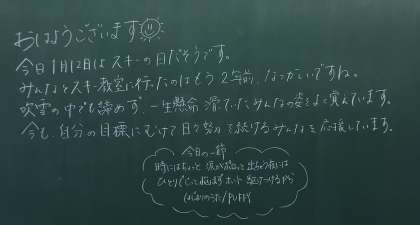 おはようございます
今日1月12日はスキーの日だそうです。
みんなとスキー教室に行ったのはもう2年前、なつかしいですね。
吹雪の中でも諦めず、一生懸命滑っていたみんなの姿をよく覚えています。
今も、自分の目標にむけて日々努力を続けるみんなを応援しています。
今日の一節
時にはちょっと 涙が出ちゃう夜には
ひとりで
はじまりのうた/PUFFY